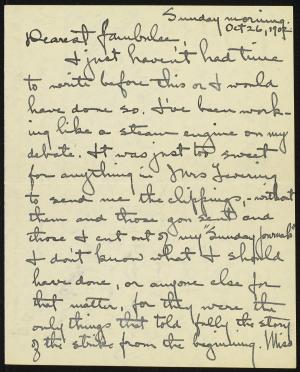 Sunday morning.
Oct 26, 1902
Dearest Fambolee,
I just haven't had time
to write before this or I would
have done so. I've been work-
ing like a steam engine on my
debate. It was just too sweet
for anything in Mrs Levering
to send me the clippings, - without
them and those you sent and
those I cut out of my "Sunday Journals"
I don't know what I should
have done, or anyone else for
that matter, for they were the
only things that told fully the story
of the strike from the beginning. Miss